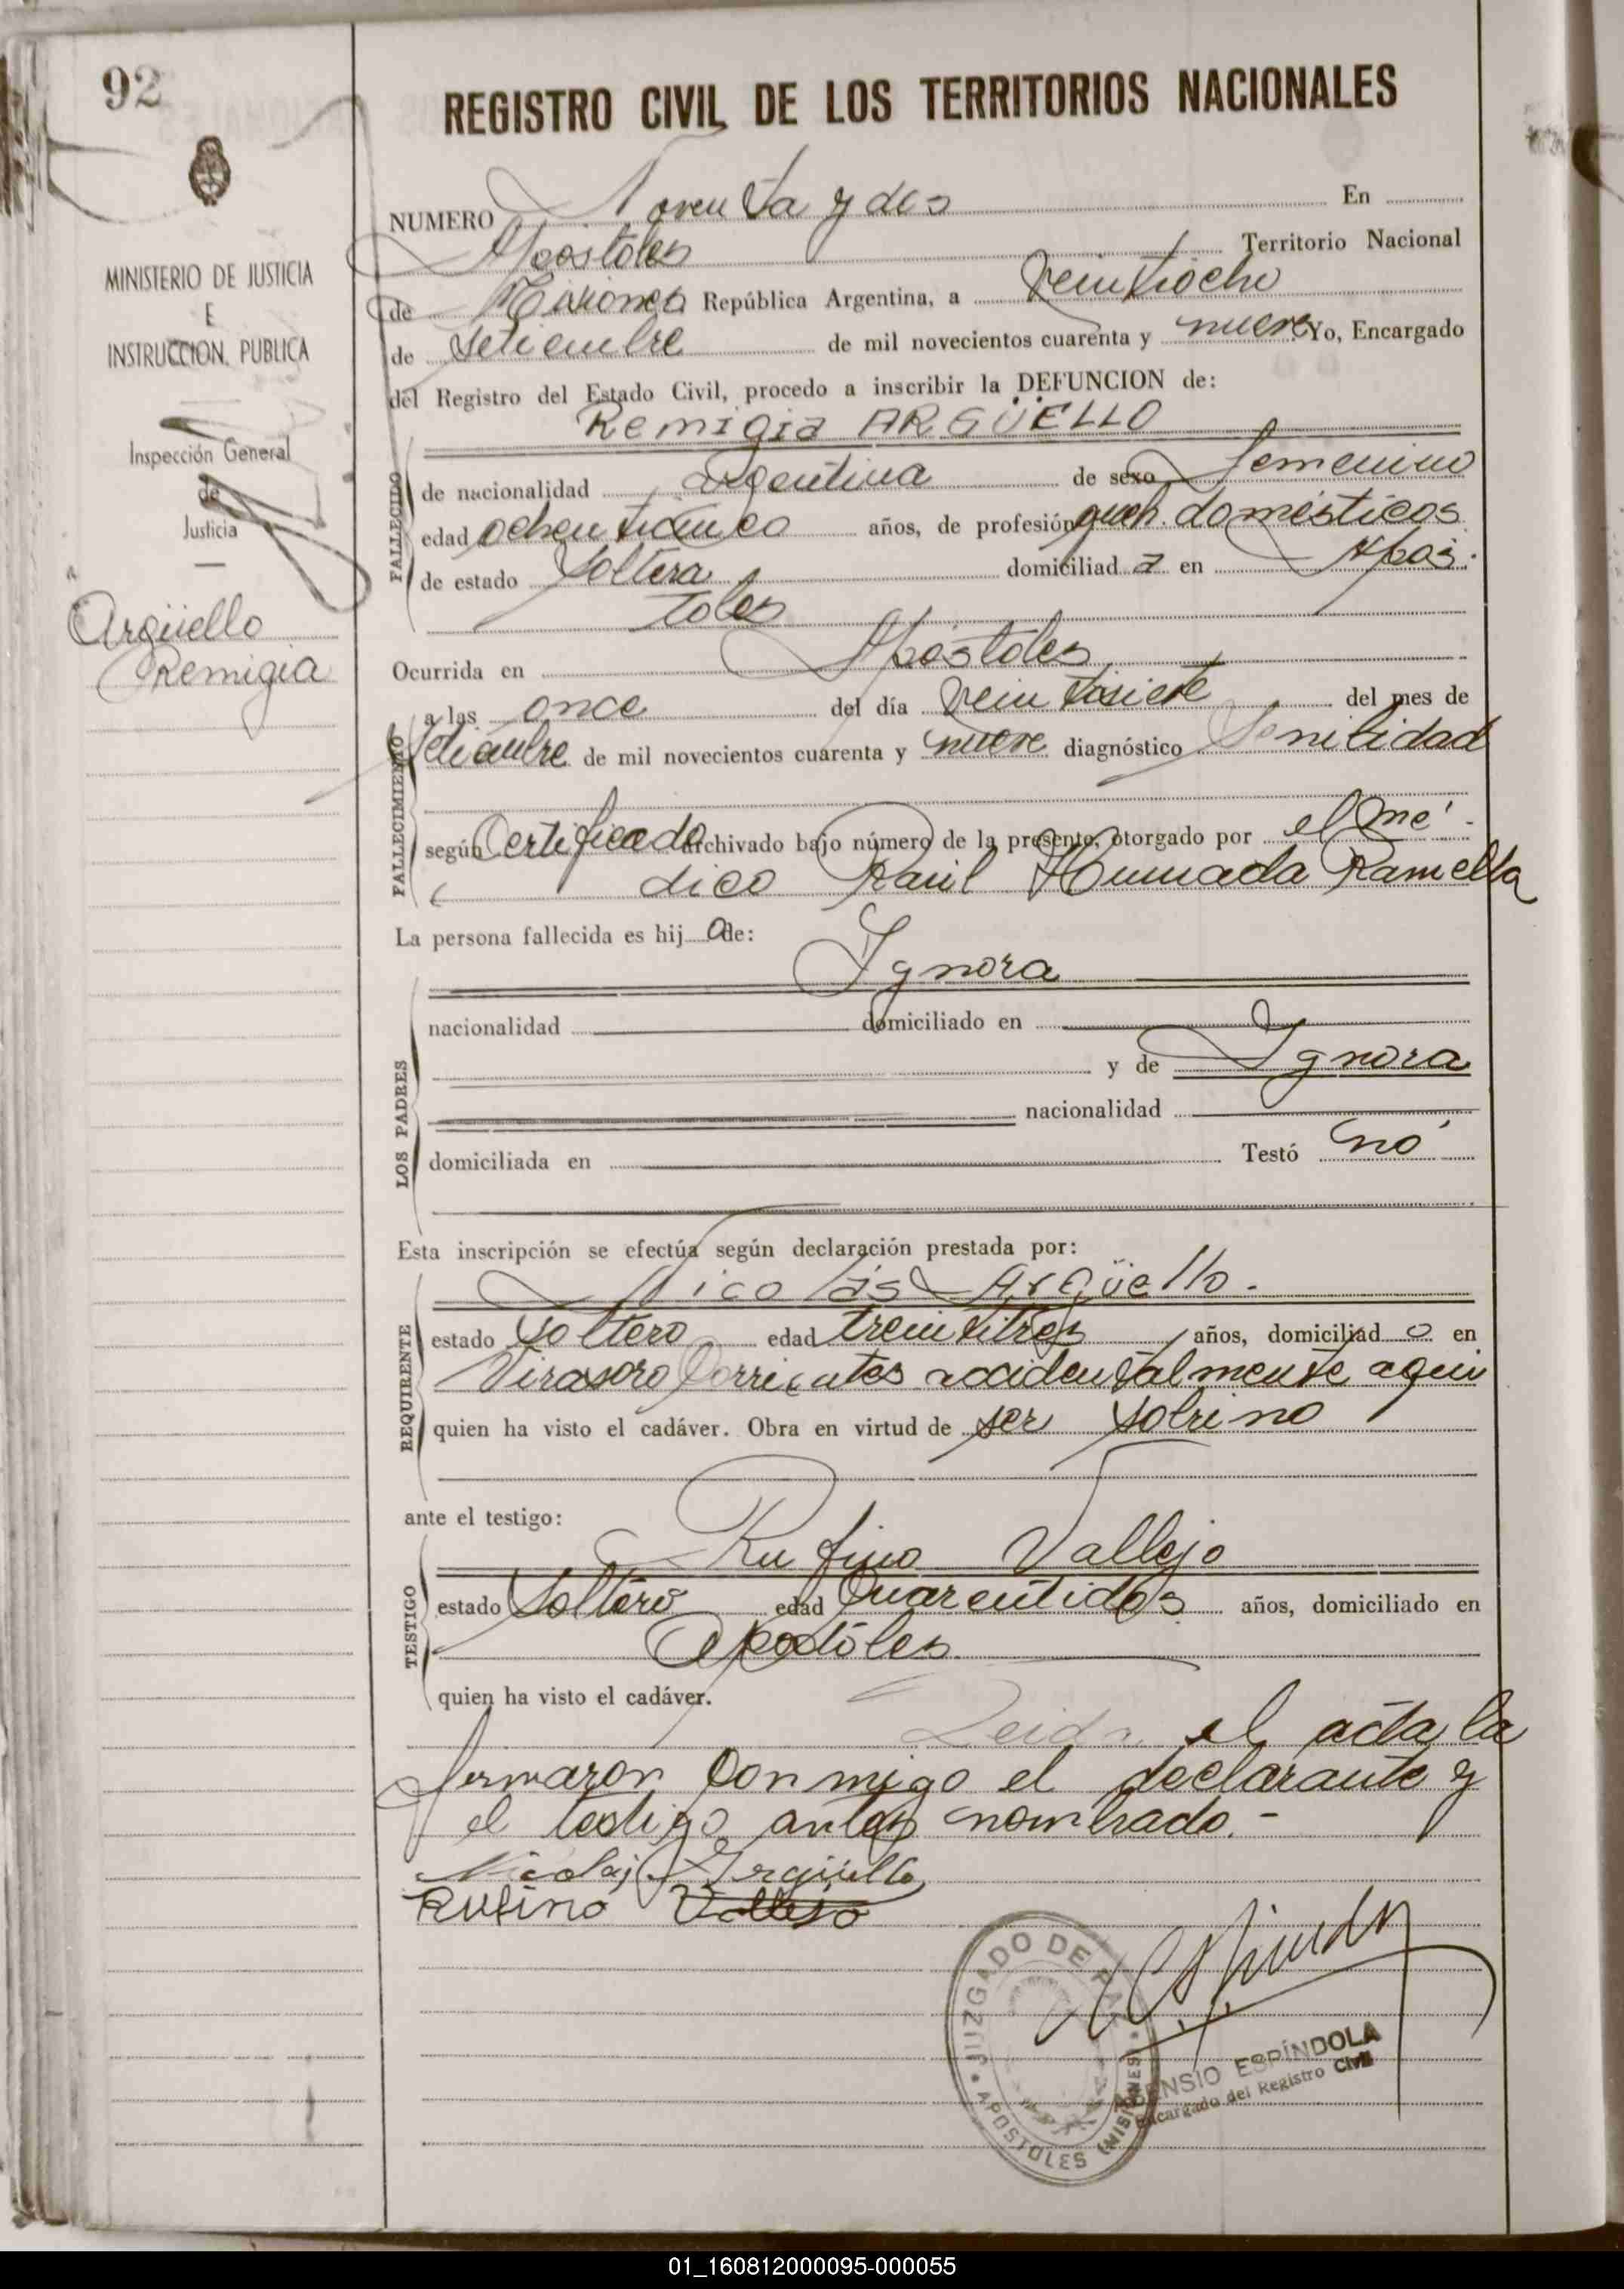 92
MINISTERIO DE JUSTICIA
E
INSTRUCCION PUBLICA
Inspección General
de
Justicia
Argüello
Remigia
REGISTRO CIVIL DE LOS TERRITORIOS NACIONALES
NUMERO Noventa y dos En
Apóstoles Territorio Nacional
de Misiones República Argentina, a veintiocho
de setiembre de mil novecientos cuarenta y nueve Yo, Encargado
del Registro del Estado Civil, procedo a inscribir la DEFUNCION de:
Remigia ARGÜELLO
FALLECIDO
de nacionalidad argentina de sexo femenino
edad ochenticinco años, de profesión queh. domésticos
de estado soltera domiciliad a en Após-
toles
Ocurrida en Apóstoles
FALLECIMIENTO
a las once del día veintisiete del mes de
setiembre de mil novecientos cuarenta y nueve diagnóstico Senilidad
según Certificado archivado bajo número de la presente, otorgado por el mé-
dico Raúl Humada Ramella
La persona fallecida es hij a de:
Ignora
LOS PADRES
nacionalidad domiciliado en
y de Ignora
nacionalidad
domiciliada en Testó nó
Esta inscripción se efectúa según declaración prestada por:
Nicolás Argüello.-
REQUIRENTE
estado soltero edad treintitres años, domiciliad o en
Virasoro Corrientes accidentalmente aquí
quien ha visto el cadáver. Obra en virtud de ser sobrino
ante el testigo:
Rufino Vallejo
TESTIGO
estado soltero edad cuarentidos años, domiciliado en
Apóstoles
quien ha visto el cadáver.
Leida el acta la
firmaron conmigo el declarante y
el testigo antes nombrado.-
Nicolas Argüello
Rufino Vallejo
JUZGADO DE PAZ
APOSTOLES (MISIONES)
ESPÍNDOLA
Encargado del Registro Civil
01_160812000095-000055